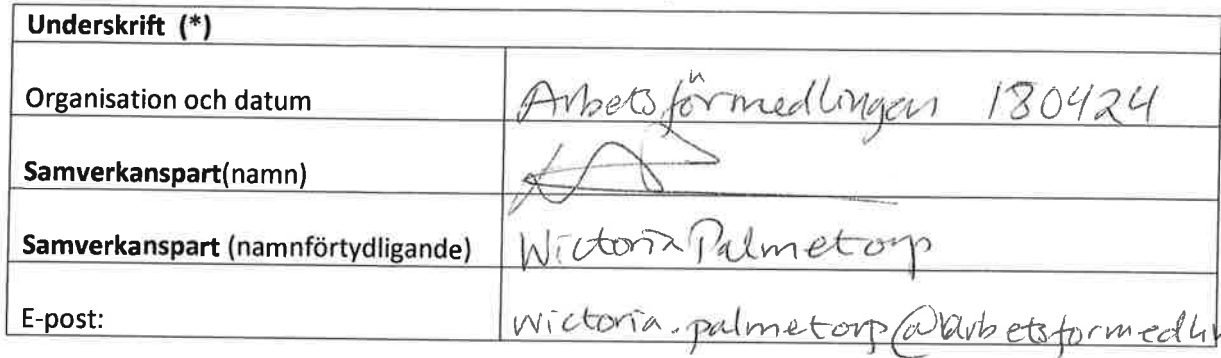 Underskrift (*)
Organisation och datum Arbetsförmedlingen 180424
Samverkanspart(namn)
Samverkanspart (namnförtydligande) Wictoria Palmetorp
E-post: wictoria.palmetorp@arbetsformedli